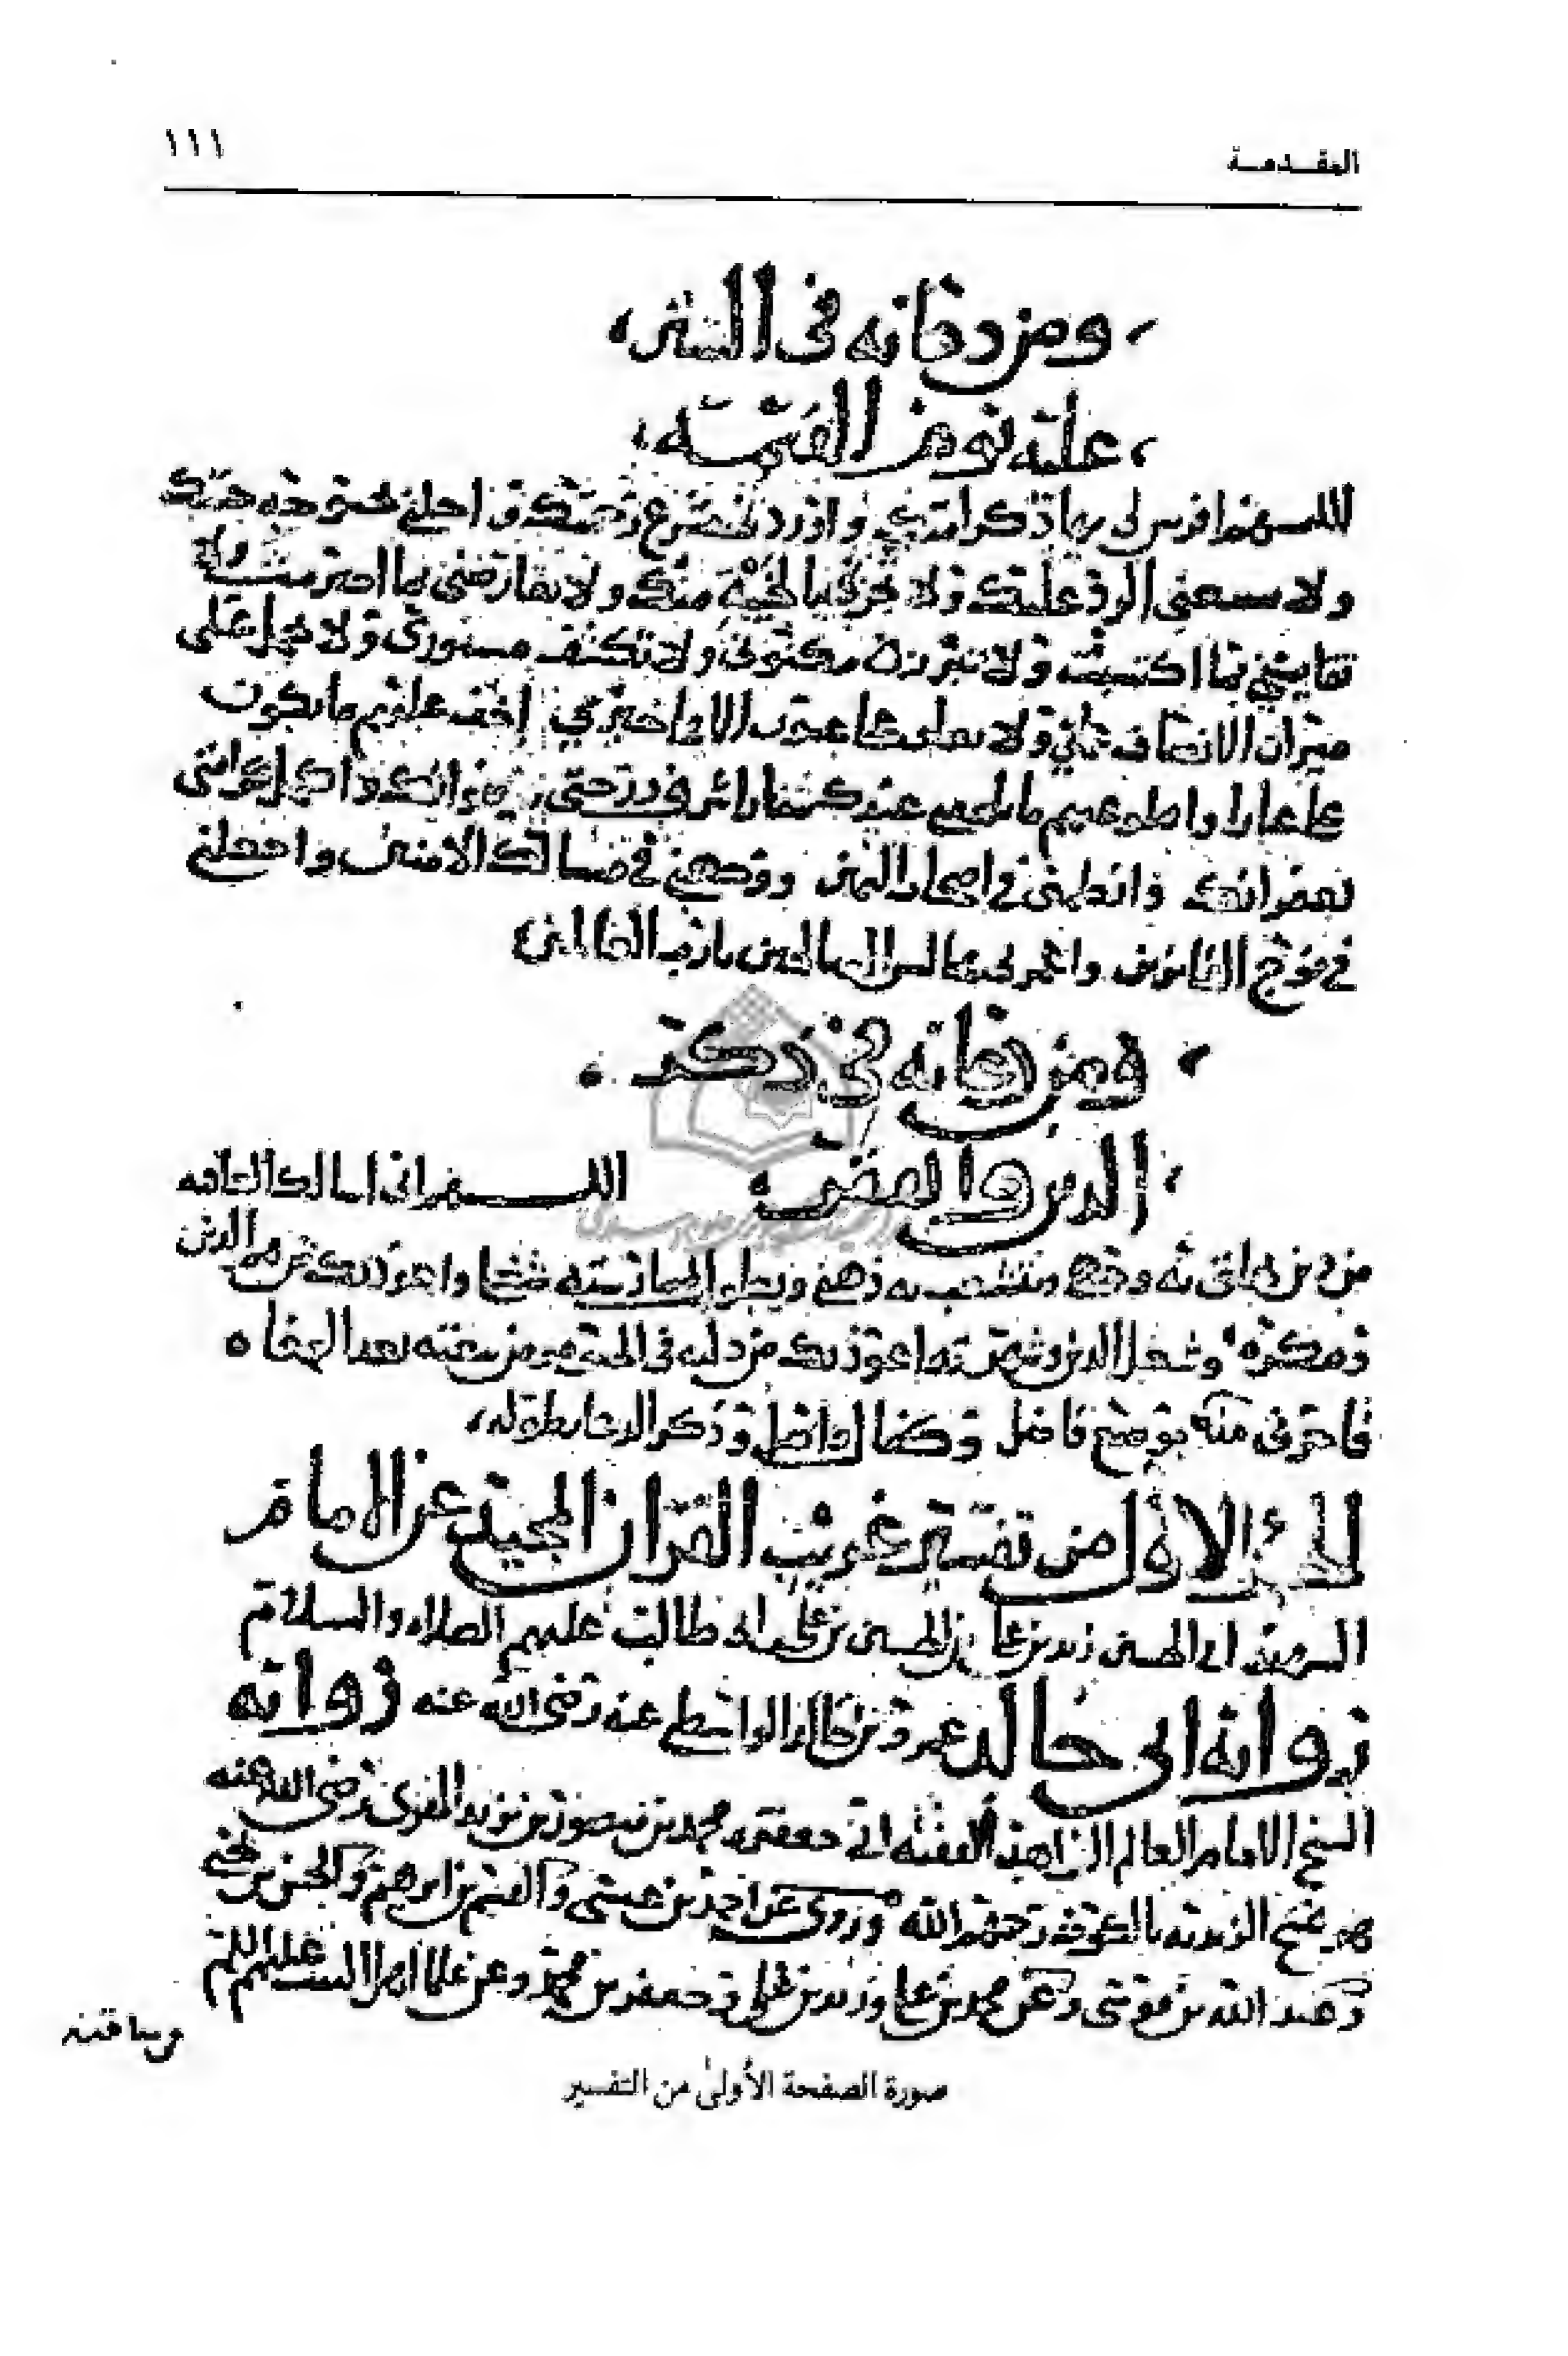 المقـدمـة
١١١
ومن دعائه في الستر
عليه يوم القيمه
اللهم افرش لي مهاد كرامتك واوردني مشرع رحمتك واحلني بحبوحة جنتك
ولا تسمني الرد عليك ولا تحرمني بالخيبة منك ولا تقارضني بما اجترمت ولا
تناقشني بما اكتسبت ولا تبرز مكتومي ولا تكشف مستوري ولا تحمل على
ميزان الانصاف عملي ولا تعلن على عيون الملا خبري اخف عليهم ما يكون
علي عارا واطو عنهم ما يلحقني عندك شنارا شرف درجتي برضوانك واكمل كرامتي
بغفرانك وانظمني في اصحاب اليمين ووجهني في مسالك الامنين واجعلني
في فوج الفائزين واعمر بي مجالس الصالحين يا رب العالمين
ومن دعائه في ذكر
الدين والمعسر اللهم اني اسالك العافيه
من دين يخلق به وجهي ويتشعب به ذهني ويطول لممارسته شغلي واعوذ بك من هم الدين
وفكره وشغل الدين وسهره اعوذ بك من ذلته في الحيوة ومن تبعته بعد الوفاه
فاجرني منه بوسع فاضل وكفاف واصل وذكر الدعا بطوله
الجزء الاول من تفسير غريب القران المجيد عن الامام
الشهيد ابي الحسين زيد بن علي بن الحسين بن علي بن ابي طالب عليهم الصلاه والسلام
روايه ابي خالد عمرو بن خالد الواسطي عنه رضي الله عنه روايه
الشيخ الامام العالم الزاهد الفقيه ابي جعفر محمد بن منصور بن يزيد المقرى رضي الله عنه
هو شيخ الزيديه بالكوفه رحمه الله وروى عن احمد بن عيسى والقسم بن ابرهيم والحسن بن يحيى
وعبد الله بن موسى وعن محمد بن علي وزيد بن علي وجعفر بن محمد وعن علما اهل البيت عليهم السلم
صورة الصفحة الأولىٰ من التفسير